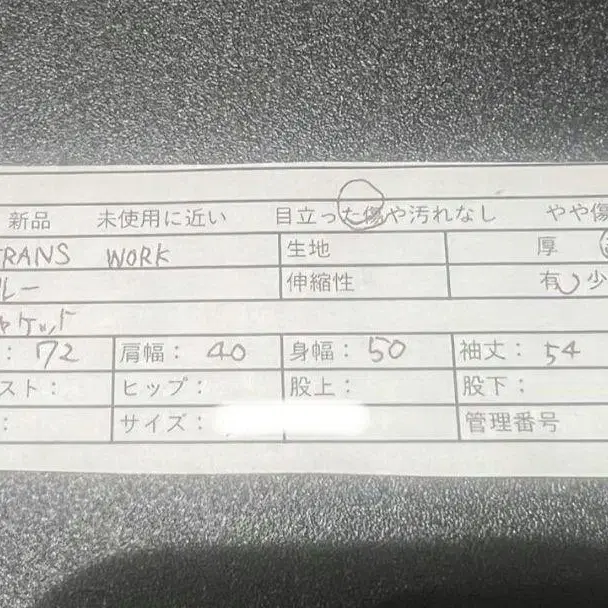 新品 未使用に近い 目立った傷や汚れなし やや傷
TRANS WORK 生地 厚
レー 伸縮性 有 少
ャケット
: 72 肩幅: 40 身幅: 50 袖丈: 54
スト: ヒップ: 股上: 股下:
: サイズ: 管理番号